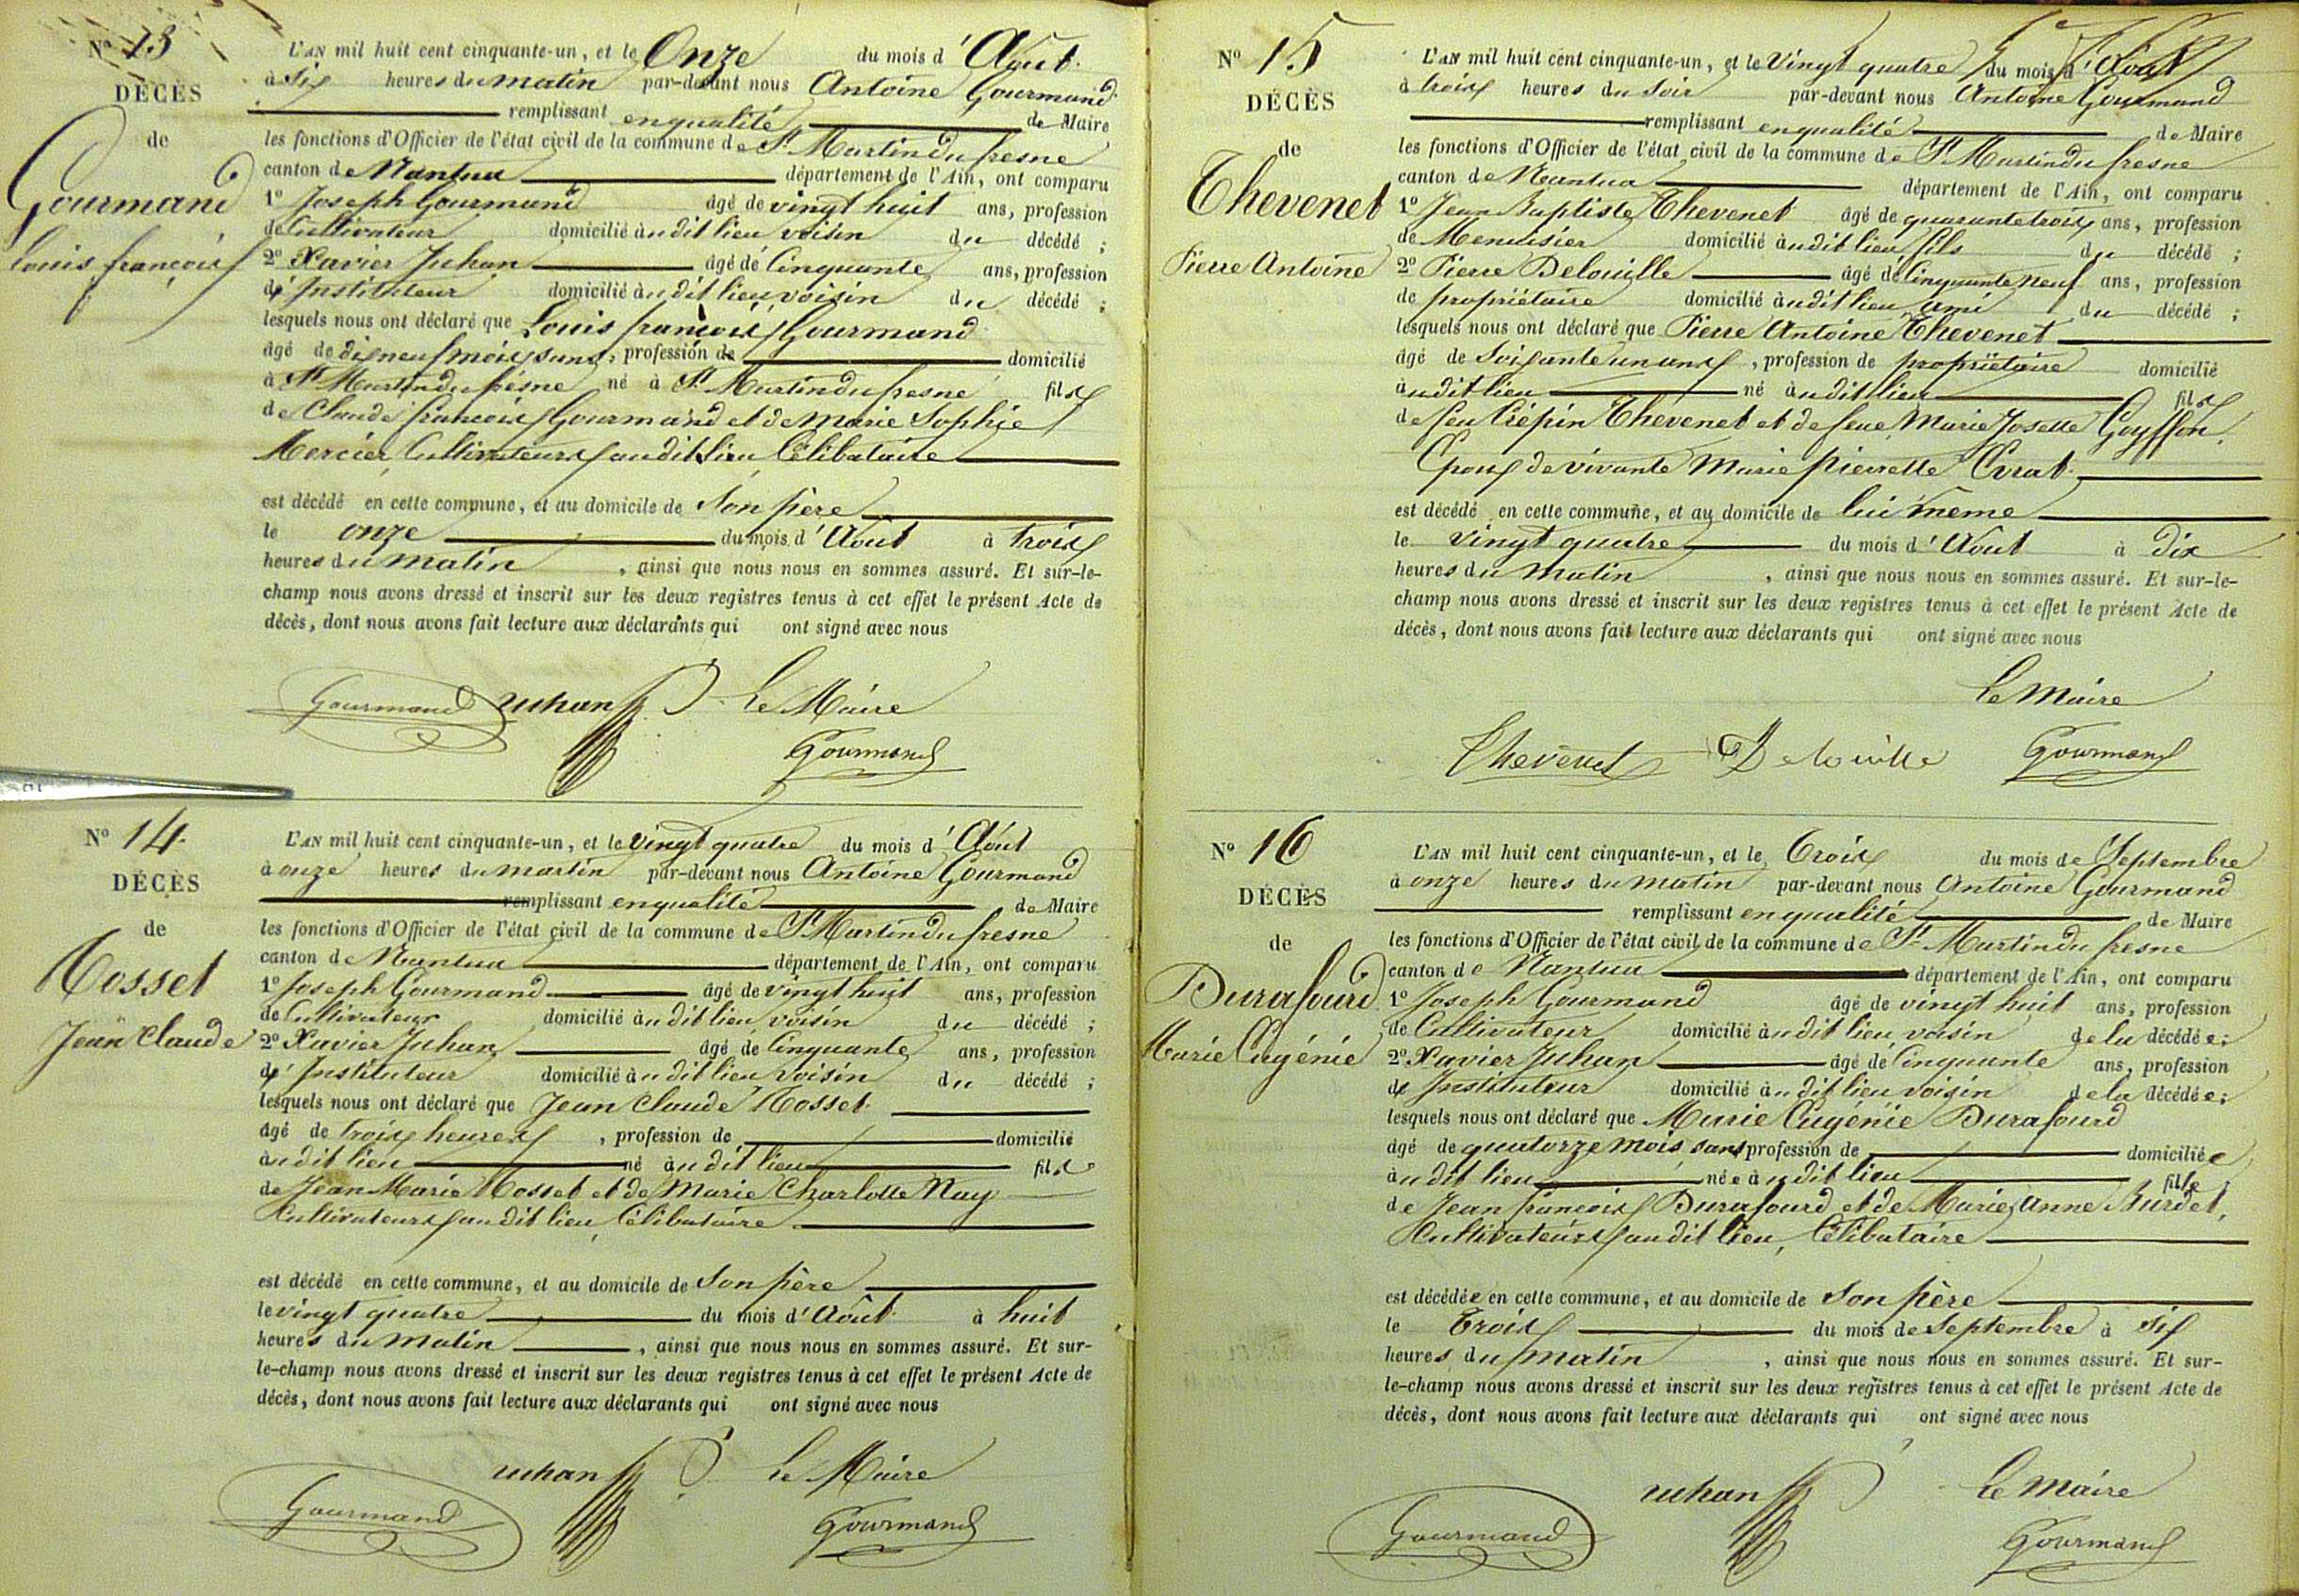 Nº 13
DÉCÈS
de
Gourmand
Louis françois
L'AN mil huit cent cinquante-un, et le Onze du mois d'Août
à six heures du matin par-devant nous Antoine Gourmand
remplissant en qualité de Maire
les fonctions d'Officier de l'état civil de la commune de St Martin du fresne
canton de Nantua département de l'Ain, ont comparu
1º Joseph Gourmand âgé de vingt huit ans, profession
de Cultivateur domicilié audit lieu voisin du décédé ;
2º Xavier Juhan âgé de Cinquante ans, profession
d'Instituteur domicilié audit lieu voisin du décédé ;
lesquels nous ont déclaré que Louis françois Gourmand
âgé de dix neuf mois sans, profession de domicilié
à St Martin du fresne né à St Martin du fresne fils
de Claude françois Gourmand et de Marie Sophie
Mercier, Cultivateurs audit lieu, Célibataire
est décédé en cette commune, et au domicile de Son Père
le onze du mois d'Août à trois
heures du matin, ainsi que nous nous en sommes assuré. Et sur-le-
champ nous avons dressé et inscrit sur les deux registres tenus à cet effet le présent Acte de
décès, dont nous avons fait lecture aux déclarants qui ont signé avec nous
Gourmand Juhan Le Maire
Gourmand
Nº 14
DÉCÈS
de
Mosset
Jean Claude
L'AN mil huit cent cinquante-un, et le vingt quatre du mois d'Août
à onze heures du martin par-devant nous Antoine Gourmand
remplissant en qualité de Maire
les fonctions d'Officier de l'état civil de la commune de St Martin du fresne
canton de Nantua département de l'Ain, ont comparu
1º Joseph Gourmand âgé de vingt huit ans, profession
de Cultivateur domicilié audit lieu voisin du décédé ;
2º Xavier Juhan âgé de Cinquante ans, profession
d'Instituteur domicilié audit lieu voisin du décédé ;
lesquels nous ont déclaré que Jean Claude Mosset
âgé de trois heures, profession de domicilié
audit lieu né audit lieu fils
de Jean Marie Mosset et de Marie Charlotte Nay
Cultivateurs audit lieu, Célibataire
est décédé en cette commune, et au domicile de Son Père
le vingt quatre du mois d'Août à huit
heures du matin, ainsi que nous nous en sommes assuré. Et sur-
le-champ nous avons dressé et inscrit sur les deux registres tenus à cet effet le présent Acte de
décès, dont nous avons fait lecture aux déclarants qui ont signé avec nous
Juhan Le Maire
Gourmand Gourmand
Nº 15
DÉCÈS
de
Thevenet
Pierre Antoine
L'AN mil huit cent cinquante-un, et le Vingt quatre du mois d'Août
à trois heures du Soir par-devant nous Antoine Gourmand
remplissant en qualité de Maire
les fonctions d'Officier de l'état civil de la commune de St Martin du fresne
canton de Nantua département de l'Ain, ont comparu
1º Jean Baptiste Thevenet âgé de quarante trois ans, profession
de Menuisier domicilié audit lieu fils du décédé ;
2º Pierre Delouille âgé de Cinquante neuf ans, profession
de propriétaire domicilié audit lieu ami du décédé ;
lesquels nous ont déclaré que Pierre Antoine Thevenet
âgé de Soixante un ans, profession de propriétaire domicilié
audit lieu né audit lieu fils
de feu Crépin Thevenet et de feue Marie Josette Goyffon.
Epoux de vivante Marie Pierrette Evrat
est décédé en cette commune, et au domicile de lui même
le vingt quatre du mois d'Août à dix
heures du matin, ainsi que nous nous en sommes assuré. Et sur-le-
champ nous avons dressé et inscrit sur les deux registres tenus à cet effet le présent Acte de
décès, dont nous avons fait lecture aux déclarants qui ont signé avec nous
Le Maire
Thevenet Delouille Gourmand
Nº 16
DÉCÈS
de
Durafourd
Marie Eugénie
L'AN mil huit cent cinquante-un, et le Trois du mois de Septembre
à onze heures du matin par-devant nous Antoine Gourmand
remplissant en qualité de Maire
les fonctions d'Officier de l'état civil de la commune de St Martin du fresne
canton de Nantua département de l'Ain, ont comparu
1º Joseph Gourmand âgé de vingt huit ans, profession
de Cultivateur domicilié audit lieu voisin de la décédée ;
2º Xavier Juhan âgé de Cinquante ans, profession
d'Instituteur domicilié audit lieu voisin de la décédée ;
lesquels nous ont déclaré que Marie Eugénie Durafourd
âgé de quatorze mois, sans profession de domiciliée
audit lieu née audit lieu fille
de Jean françois Durafourd et de Marie Anne Burdet,
Cultivateurs audit lieu, Célibataire
est décédée en cette commune, et au domicile de Son Père
le Trois du mois de Septembre à six
heures du matin, ainsi que nous nous en sommes assuré. Et sur-
le-champ nous avons dressé et inscrit sur les deux registres tenus à cet effet le présent Acte de
décès, dont nous avons fait lecture aux déclarants qui ont signé avec nous
Juhan Le Maire
Gourmand Gourmand